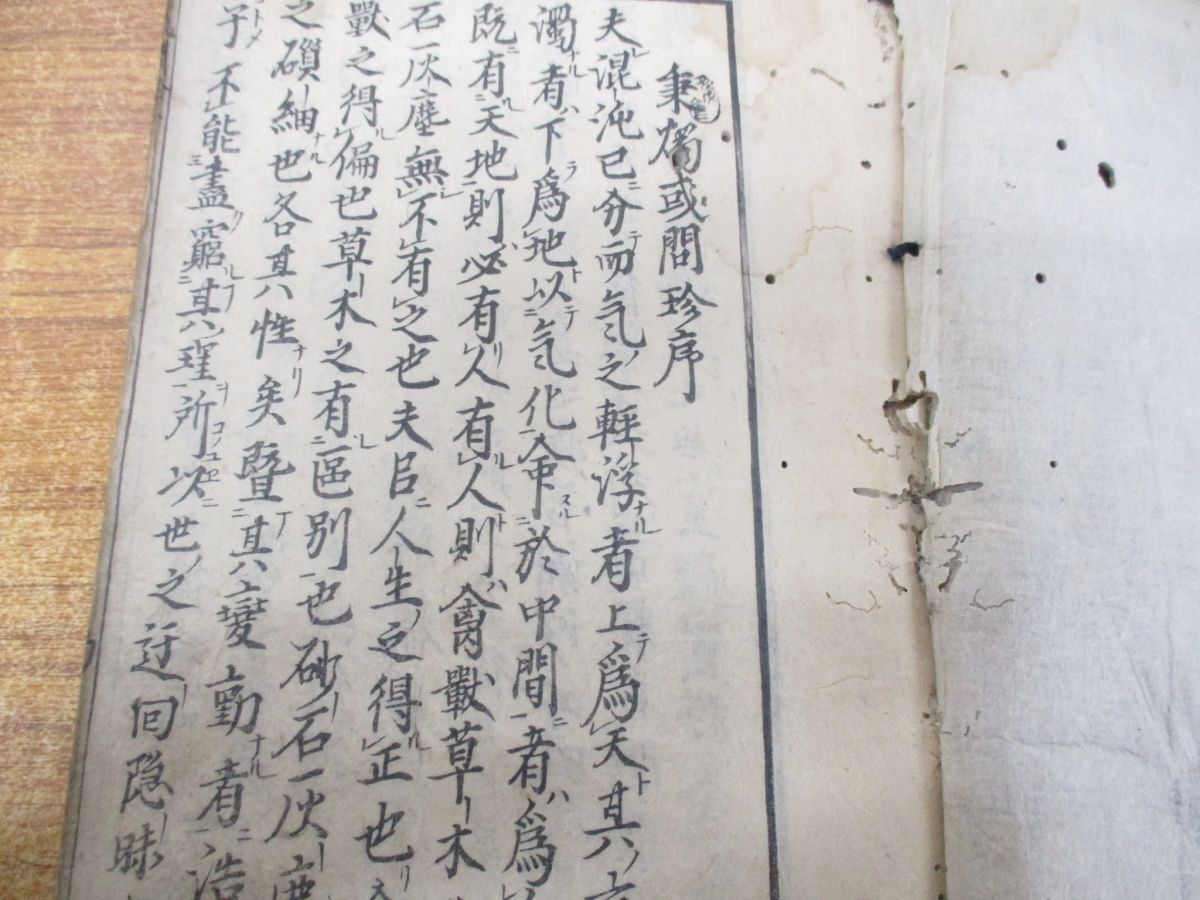 秉燭或問珍序
夫混沌已分而气之輕浮者上爲天其
濁者下爲地以气化命於中間者爲
既有天地則必有人有人則禽獸草木
石灰塵無不有之也夫吕人生之得正也
獸之得偏也草木之有區別也砂石灰塵
之磧紬也各其性矣暨其變動者浩
子不能盡窮其理所以世之迂回隐昧